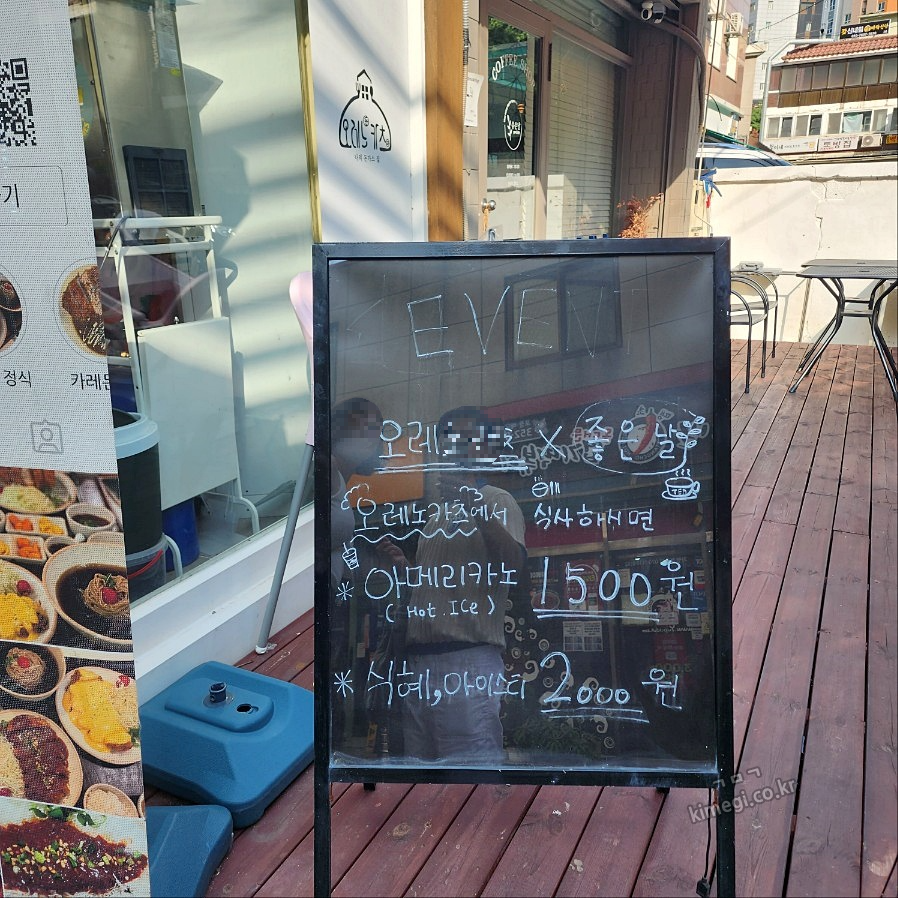 오레노카츠
카레 돈까스 집
COFFEE
기
정식
카레돈
EVENT
오레노카츠 X 좋은날
오레노카츠에서 식사하시면
* 아메리카노 1500원
( Hot . ICe )
* 식혜, 아이스티 2000원
ㄱㅁㄱ
kimegi.co.kr